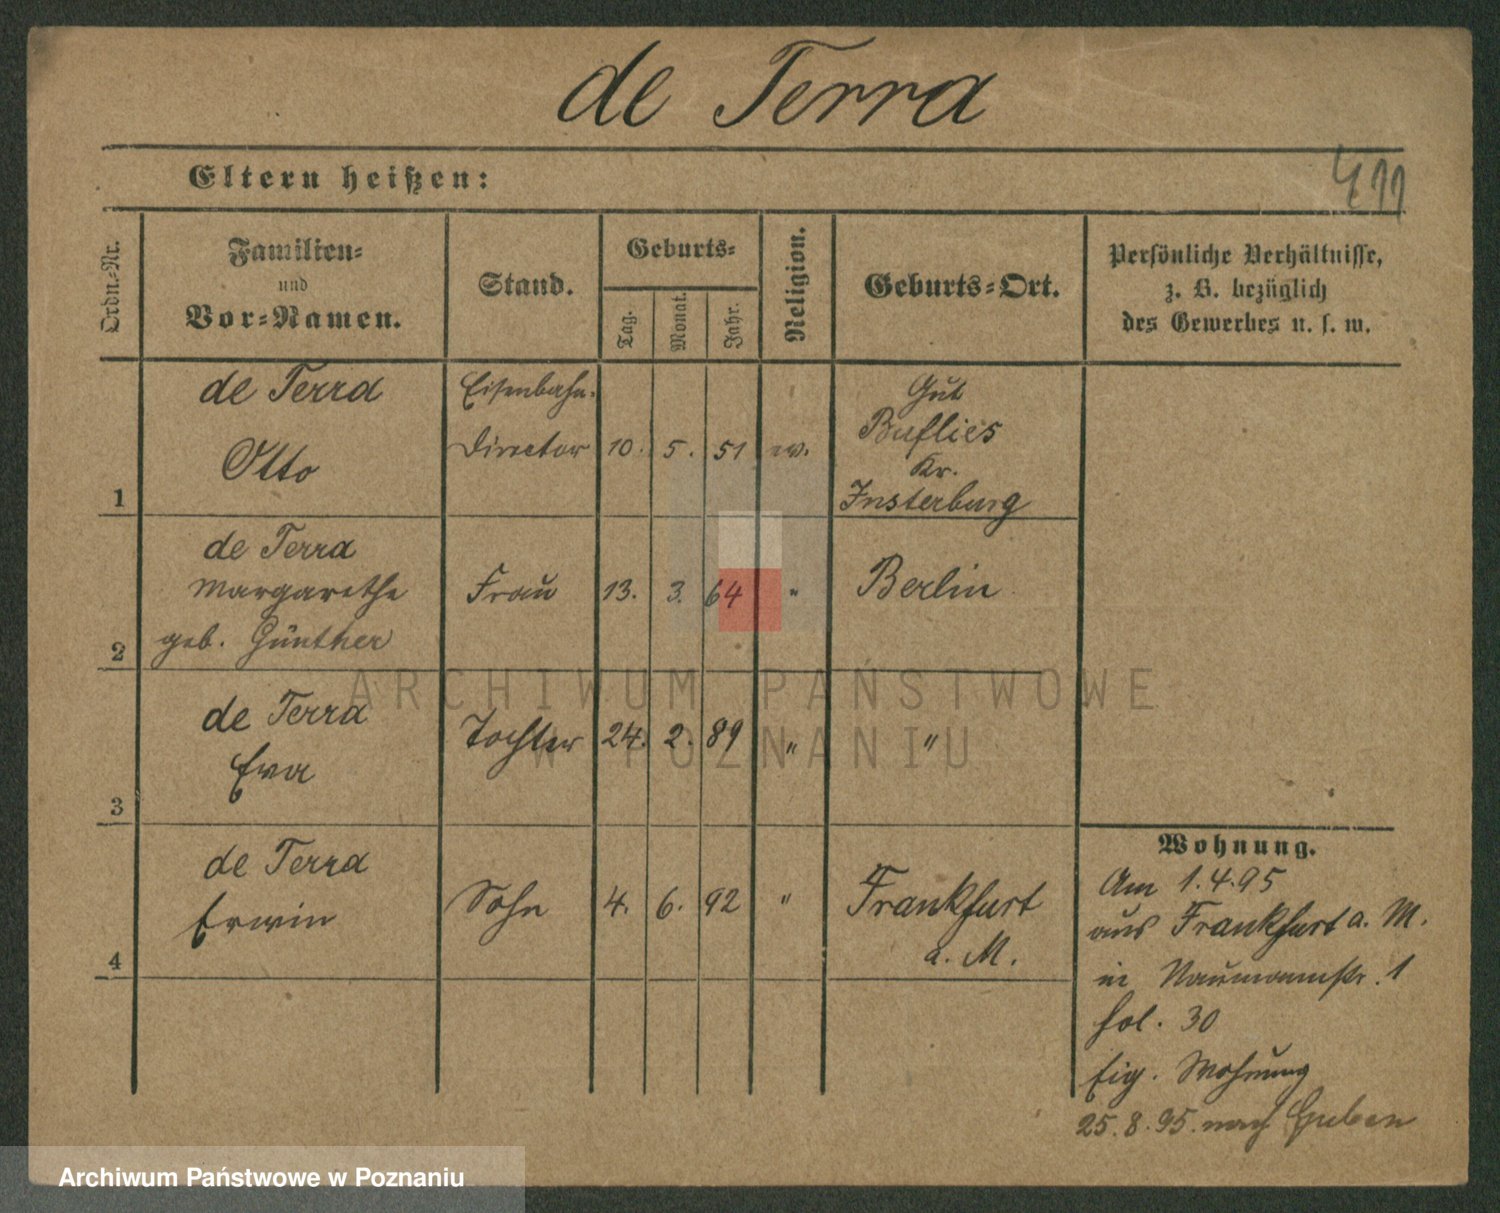 de Terra
Eltern heißen:
411
Ordn.-Nr.
Familien-
und
Vor-Namen.
Stand.
Geburts-
Tag.
Monat.
Jahr.
Religion.
Geburts-Ort.
Persönliche Verhältnisse,
z. B. bezüglich
des Gewerbes u. s. w.
1
de Terra
Otto
Eisenbahn-
Director
10. 5. 51
ev.
Gut
Kr.
Insterburg
2
de Terra
Margarethe
geb. Günther
Frau
13. 3. 64
"
Berlin
3
de Terra
Eva
Tochter
24. 2. 89
"
"
4
de Terra
Erwin
Sohn
4. 6. 92
"
Frankfurt
a. M.
Wohnung.
Am 1.4.95
aus Frankfurt a. M.
in Naumannstr. 1
fol. 30
Eig. Wohnung
25.8.95. nach Guben
ARCHIWUM PAŃSTWOWE
W POZNANIU
Archiwum Państwowe w Poznaniu